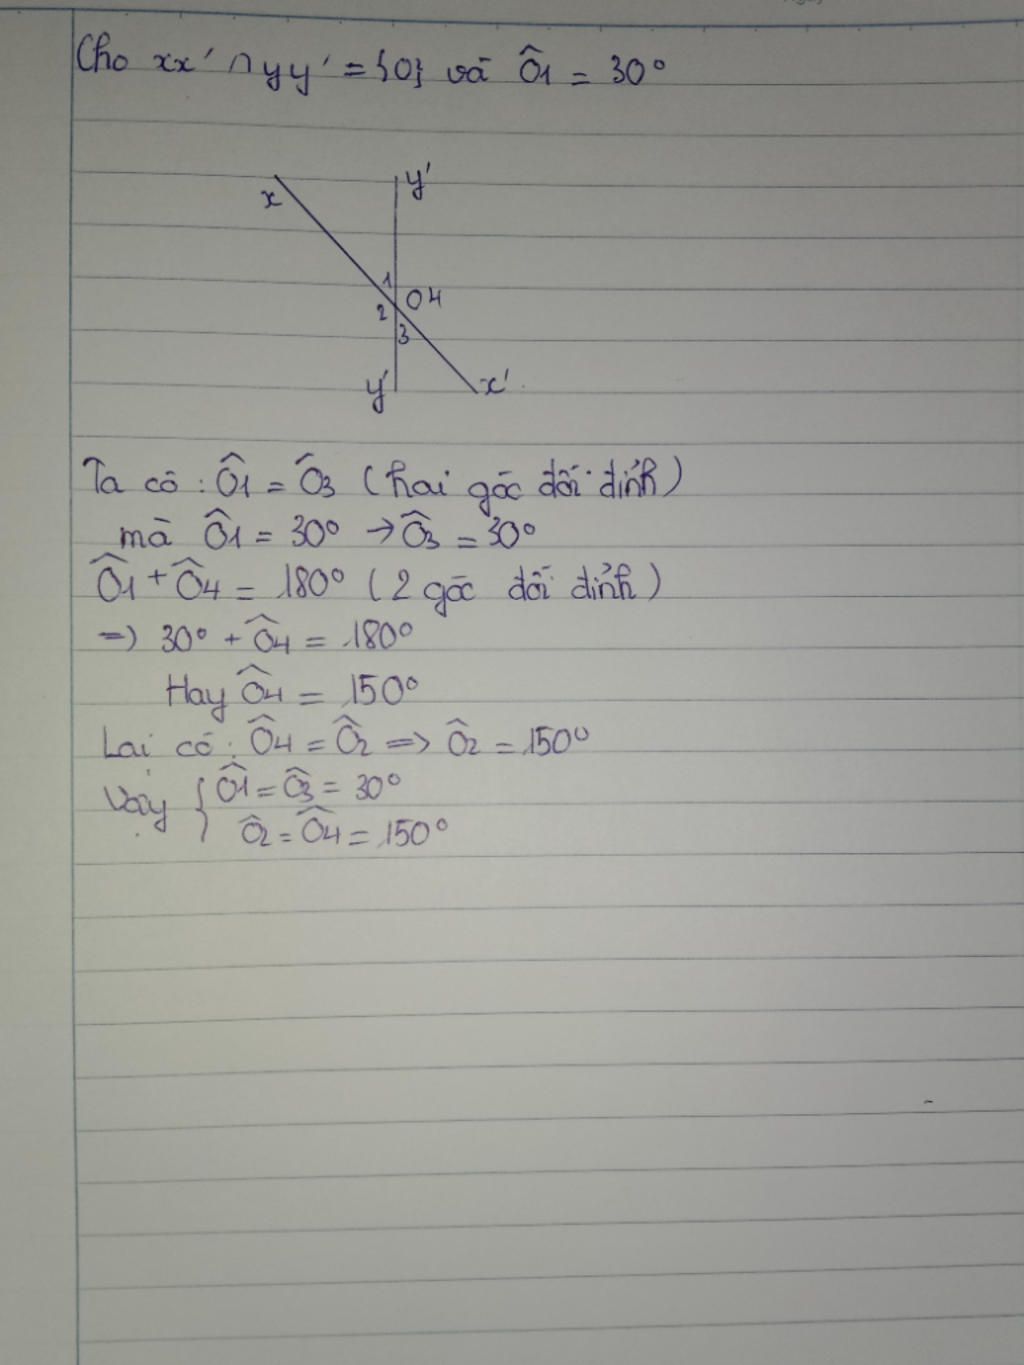 Cho xx' ∩ yy' = {O} và Ô1 = 30°
x
y'
1
2
O 4
3
y'
x'
Ta có : Ô1 = Ô3 (hai góc đối đỉnh)
mà Ô1 = 30° → Ô3 = 30°
Ô1 + Ô4 = 180° (2 góc đối đỉnh)
=> 30° + Ô4 = 180°
Hay Ô4 = 150°
Lại có : Ô4 = Ô2 => Ô2 = 150°
Vậy { Ô1 = Ô3 = 30°
Ô2 = Ô4 = 150°